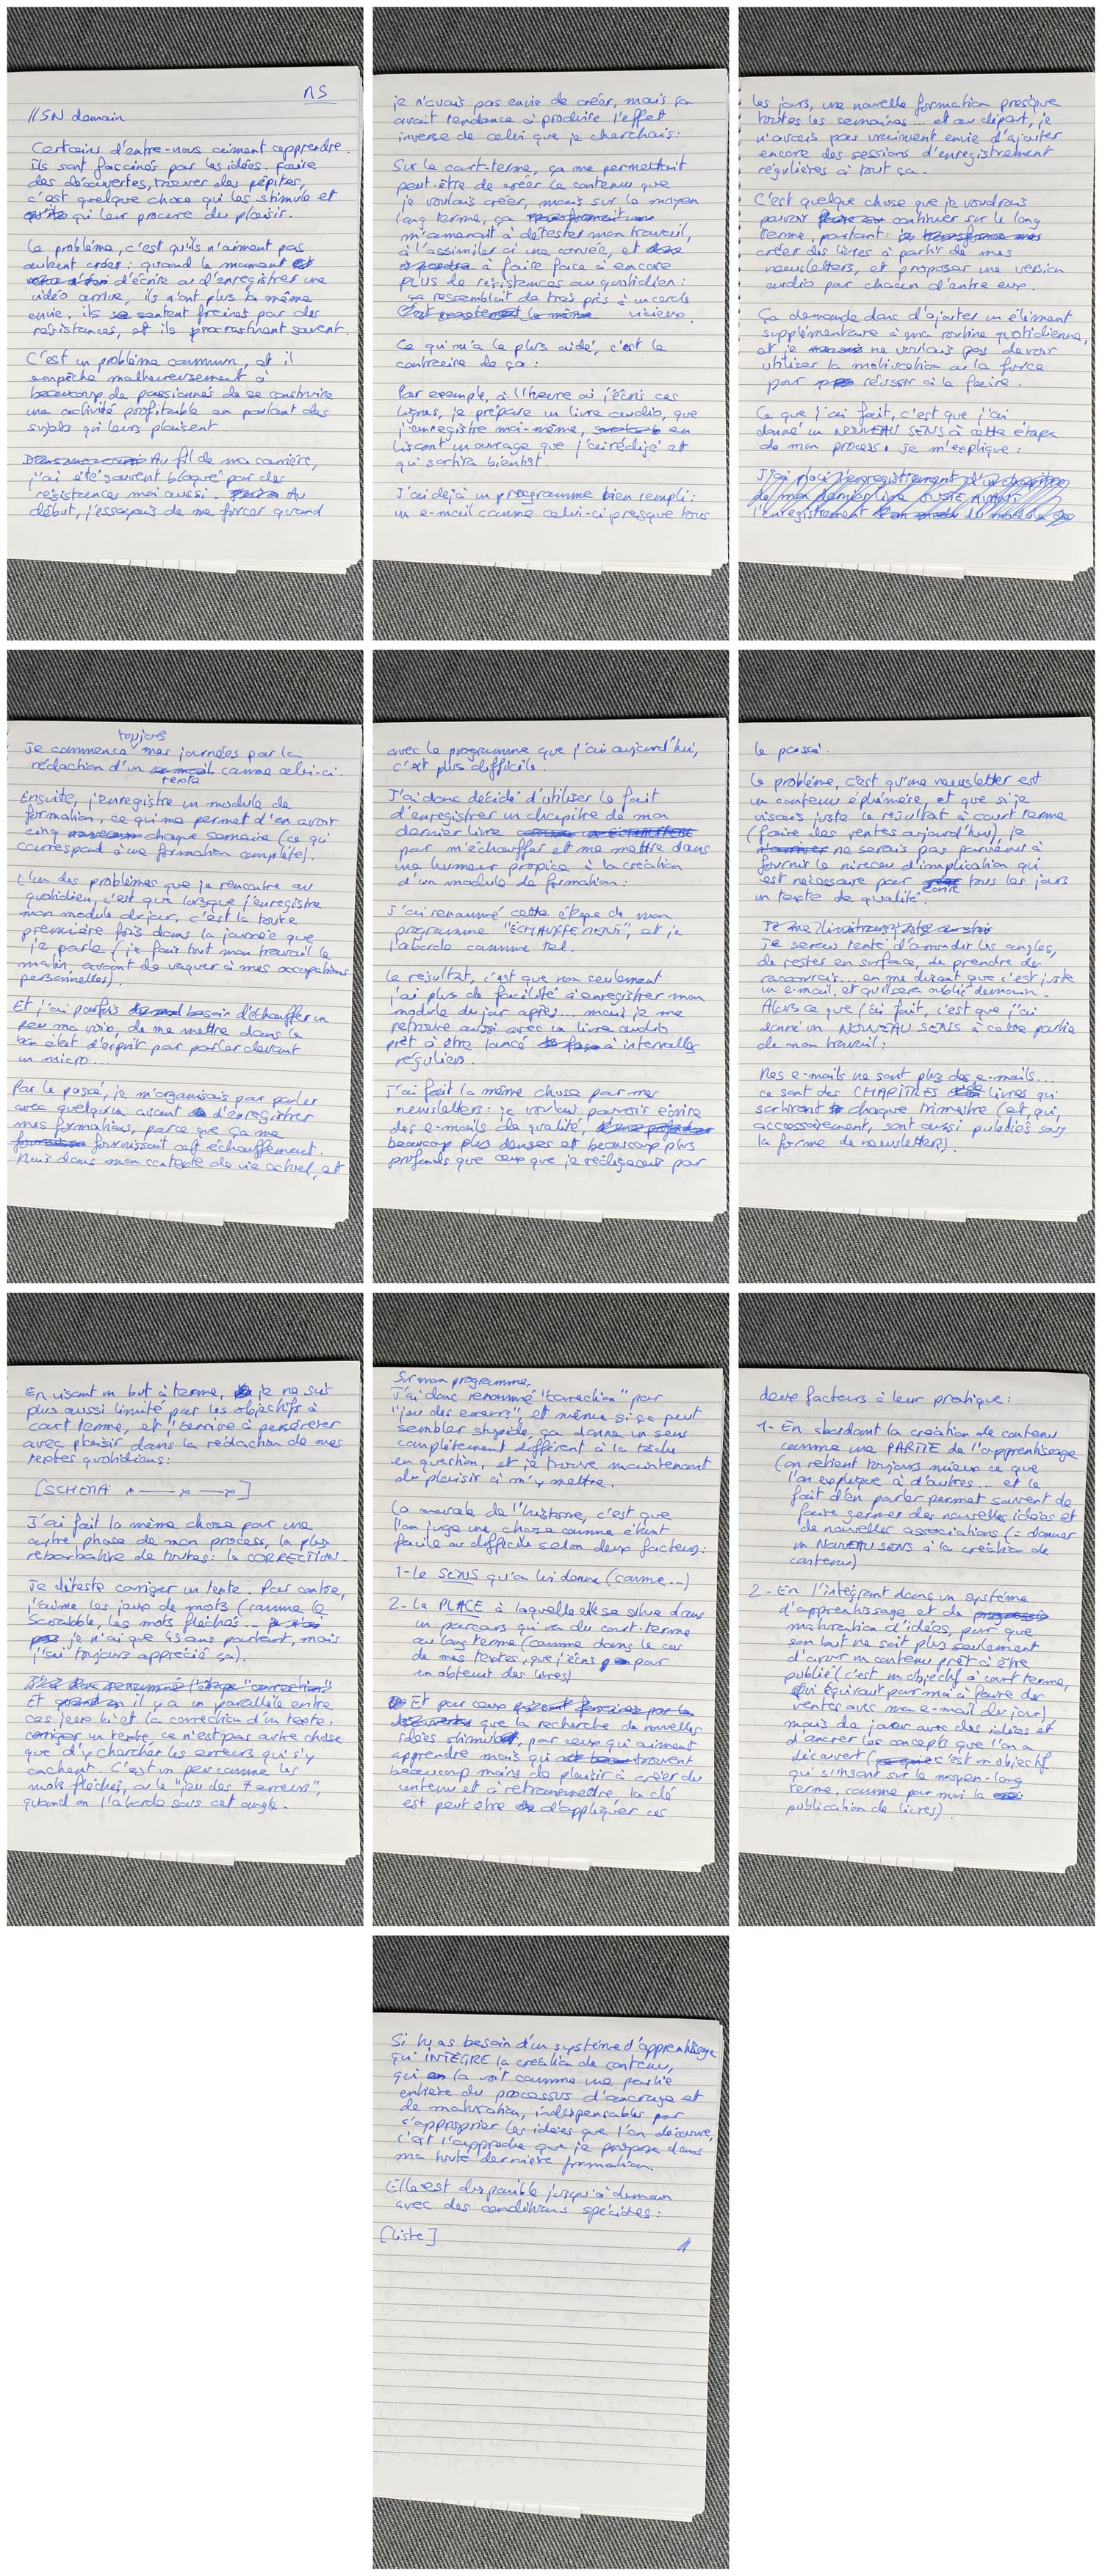 nS
//SN demain
Certains d'entre-nous aiment apprendre.
Ils sont fascinés par les idées. Faire
des découvertes, trouver des pépites,
c'est quelque chose qui les stimule et
qui leur procure du plaisir.
Le problème, c'est qu'ils n'aiment pas
autant créer : quand le moment
d'écrire ou d'enregistrer une
vidéo arrive, ils n'ont plus la même
envie, ils se sentent freinés par des
résistances, et ils procrastinent souvent.
C'est un problème commun, et il
empêche malheureusement à
beaucoup de passionnés de se construire
une activité profitable en parlant des
sujets qui leurs plaisent.
Au fil de ma carrière,
j'ai été souvent bloqué par des
résistances moi aussi. Au
début, j'essayais de me forcer quand
je n'avais pas envie de créer, mais ça
avait tendance à produire l'effet
inverse de celui que je cherchais :
Sur le court-terme, ça me permettait
peut-être de créer le contenu que
je voulais créer, mais sur le moyen
long terme, ça
m'amenait à détester mon travail,
à l'assimiler à une corvée, et
à faire face à encore
PLUS de résistances au quotidien :
ça ressemblait de très près à un cercle
vicieux.
Ce qui m'a le plus aidé, c'est le
contraire de ça :
Par exemple, à l'heure où j'écris ces
lignes, je prépare un livre audio, que
j'enregistre moi-même, en
lisant un ouvrage que j'ai rédigé et
qui sortira bientôt.
J'ai déjà un programme bien rempli :
un e-mail comme celui-ci presque tous
les jours, une nouvelle formation presque
toutes les semaines... et au départ, je
n'avais pas vraiment envie d'ajouter
encore des sessions d'enregistrement
régulières à tout ça.
C'est quelque chose que je voudrais
pouvoir continuer sur le long
terme, pourtant :
créer des livres à partir de mes
newsletters, et proposer une version
audio pour chacun d'entre eux.
Ça demande donc d'ajouter un élément
supplémentaire à ma routine quotidienne,
et je ne voulais pas devoir
utiliser la motivation ou la force
pour réussir à le faire.
Ce que j'ai fait, c'est que j'ai
donné un NOUVEAU SENS à cette étape
de mon process. Je m'explique :
J'ai placé l'enregistrement d'un chapitre
de mon dernier livre JUSTE AVANT
l'enregistrement du module
toujours
Je commence mes journées par la
rédaction d'un comme celui-ci.
texte
Ensuite, j'enregistre un module de
formation, ce qui me permet d'en avoir
cinq chaque semaine (ce qui
correspond à une formation complète).
L'un des problèmes que je rencontre au
quotidien, c'est que lorsque j'enregistre
mon module du jour, c'est la toute
première fois dans la journée que
je parle (je fais tout mon travail le
matin, avant de vaquer à mes occupations
personnelles).
Et j'ai parfois besoin d'échauffer un
peu ma voix, de me mettre dans le
bon état d'esprit pour parler devant
un micro...
Par le passé, je m'organisais pour parler
avec quelqu'un avant d'enregistrer
mes formations, parce que ça me
fournissait cet échauffement.
Mais dans mon contexte de vie actuel, et
avec le programme que j'ai aujourd'hui,
c'est plus difficile.
J'ai donc décidé d'utiliser le fait
d'enregistrer un chapitre de mon
dernier livre
pour m'échauffer et me mettre dans
une humeur propice à la création
d'un module de formation :
J'ai renommé cette étape de mon
programme "ÉCHAUFFEMENT", et je
l'aborde comme tel.
Le résultat, c'est que non seulement
j'ai plus de facilité à enregistrer mon
module du jour après... mais je me
retrouve aussi avec un livre audio
prêt à être lancé à intervalles
réguliers.
J'ai fait la même chose pour mes
newsletters : je voulais pouvoir écrire
des e-mails de qualité,
beaucoup plus denses et beaucoup plus
profonds que ceux que je rédigeais par
le passé.
Le problème, c'est qu'une newsletter est
un contenu éphémère, et que si je
visais juste le résultat à court terme
(faire des ventes aujourd'hui), je
ne serais pas parvenu à
fournir le niveau d'implication qui
est nécessaire pour écrire tous les jours
un texte de qualité.
Je serais tenté d'arrondir les angles,
de rester en surface, de prendre des
raccourcis... en me disant que c'est juste
un e-mail, et qu'il sera oublié demain.
Alors ce que j'ai fait, c'est que j'ai
donné un NOUVEAU SENS à cette partie
de mon travail :
Mes e-mails ne sont plus des e-mails...
ce sont des CHAPITRES de livres qui
sortiront chaque trimestre (et, qui,
accessoirement, sont aussi publiés sous
la forme de newsletters).
En visant un but à terme, je ne suis
plus aussi limité par les objectifs à
court terme, et j'arrive à persévérer
avec plaisir dans la rédaction de mes
textes quotidiens :
[SCHEMA]
J'ai fait la même chose pour une
autre phase de mon process, la plus
rébarbative de toutes : la CORRECTION.
Je déteste corriger un texte. Par contre,
j'aime les jeux de mots (comme le
Scrabble, les mots fléchés...
je n'ai que 43 ans pourtant, mais
j'ai toujours apprécié ça).
J'ai donc renommé l'étape "correction"
Et il y a un parallèle entre
ces jeux là et la correction d'un texte.
corriger un texte, ce n'est pas autre chose
que d'y chercher les erreurs qui s'y
cachent. C'est un peu comme les
mots fléchés, ou le "jeu des 7 erreurs",
quand on l'aborde sous cet angle.
Sur mon programme,
J'ai donc renommé "correction" par
"jeu des erreurs", et même si ça peut
sembler stupide, ça donne un sens
complètement différent à la tâche
en question, et je trouve maintenant
du plaisir à m'y mettre.
La morale de l'histoire, c'est que
l'on juge une chose comme étant
facile ou difficile selon deux facteurs :
1- Le SENS qu'on lui donne (comme...)
2- La PLACE à laquelle elle se situe dans
un parcours qui va du court-terme
au long terme (comme dans le cas
de mes textes, que j'écris pour
en obtenir des livres)
Et pour ceux
que la recherche de nouvelles
idées stimule, pour ceux qui aiment
apprendre mais qui trouvent
beaucoup moins de plaisir à créer du
contenu et à retransmettre, la clé
est peut être d'appliquer ces
deux facteurs à leur pratique :
1- En abordant la création de contenu
comme une PARTIE de l'apprentissage
(on retient toujours mieux ce que
l'on explique à d'autres... et le
fait d'en parler permet souvent de
faire germer des nouvelles idées et
de nouvelles associations (= donner
un NOUVEAU SENS à la création de
contenu)
2- En l'intégrant dans un système
d'apprentissage et de
maturation d'idées, pour que
son but ne soit plus seulement
d'avoir un contenu prêt à être
publié (c'est un objectif à court terme,
qui équivaut pour moi à faire des
ventes avec mon e-mail du jour)
mais de jouer avec des idées et
d'ancrer les concepts que l'on a
découvert (c'est un objectif
qui s'inscrit sur le moyen-long
terme, comme pour moi la
publication de livres).
Si tu as besoin d'un système d'apprentissage
qui INTÈGRE la création de contenu,
qui la voit comme une partie
entière du processus d'ancrage et
de maturation, indispensables pour
s'approprier les idées que l'on découvre,
c'est l'approche que je propose dans
ma toute dernière formation.
Elle est disponible jusqu'à demain
avec des conditions spéciales :
[Liste]